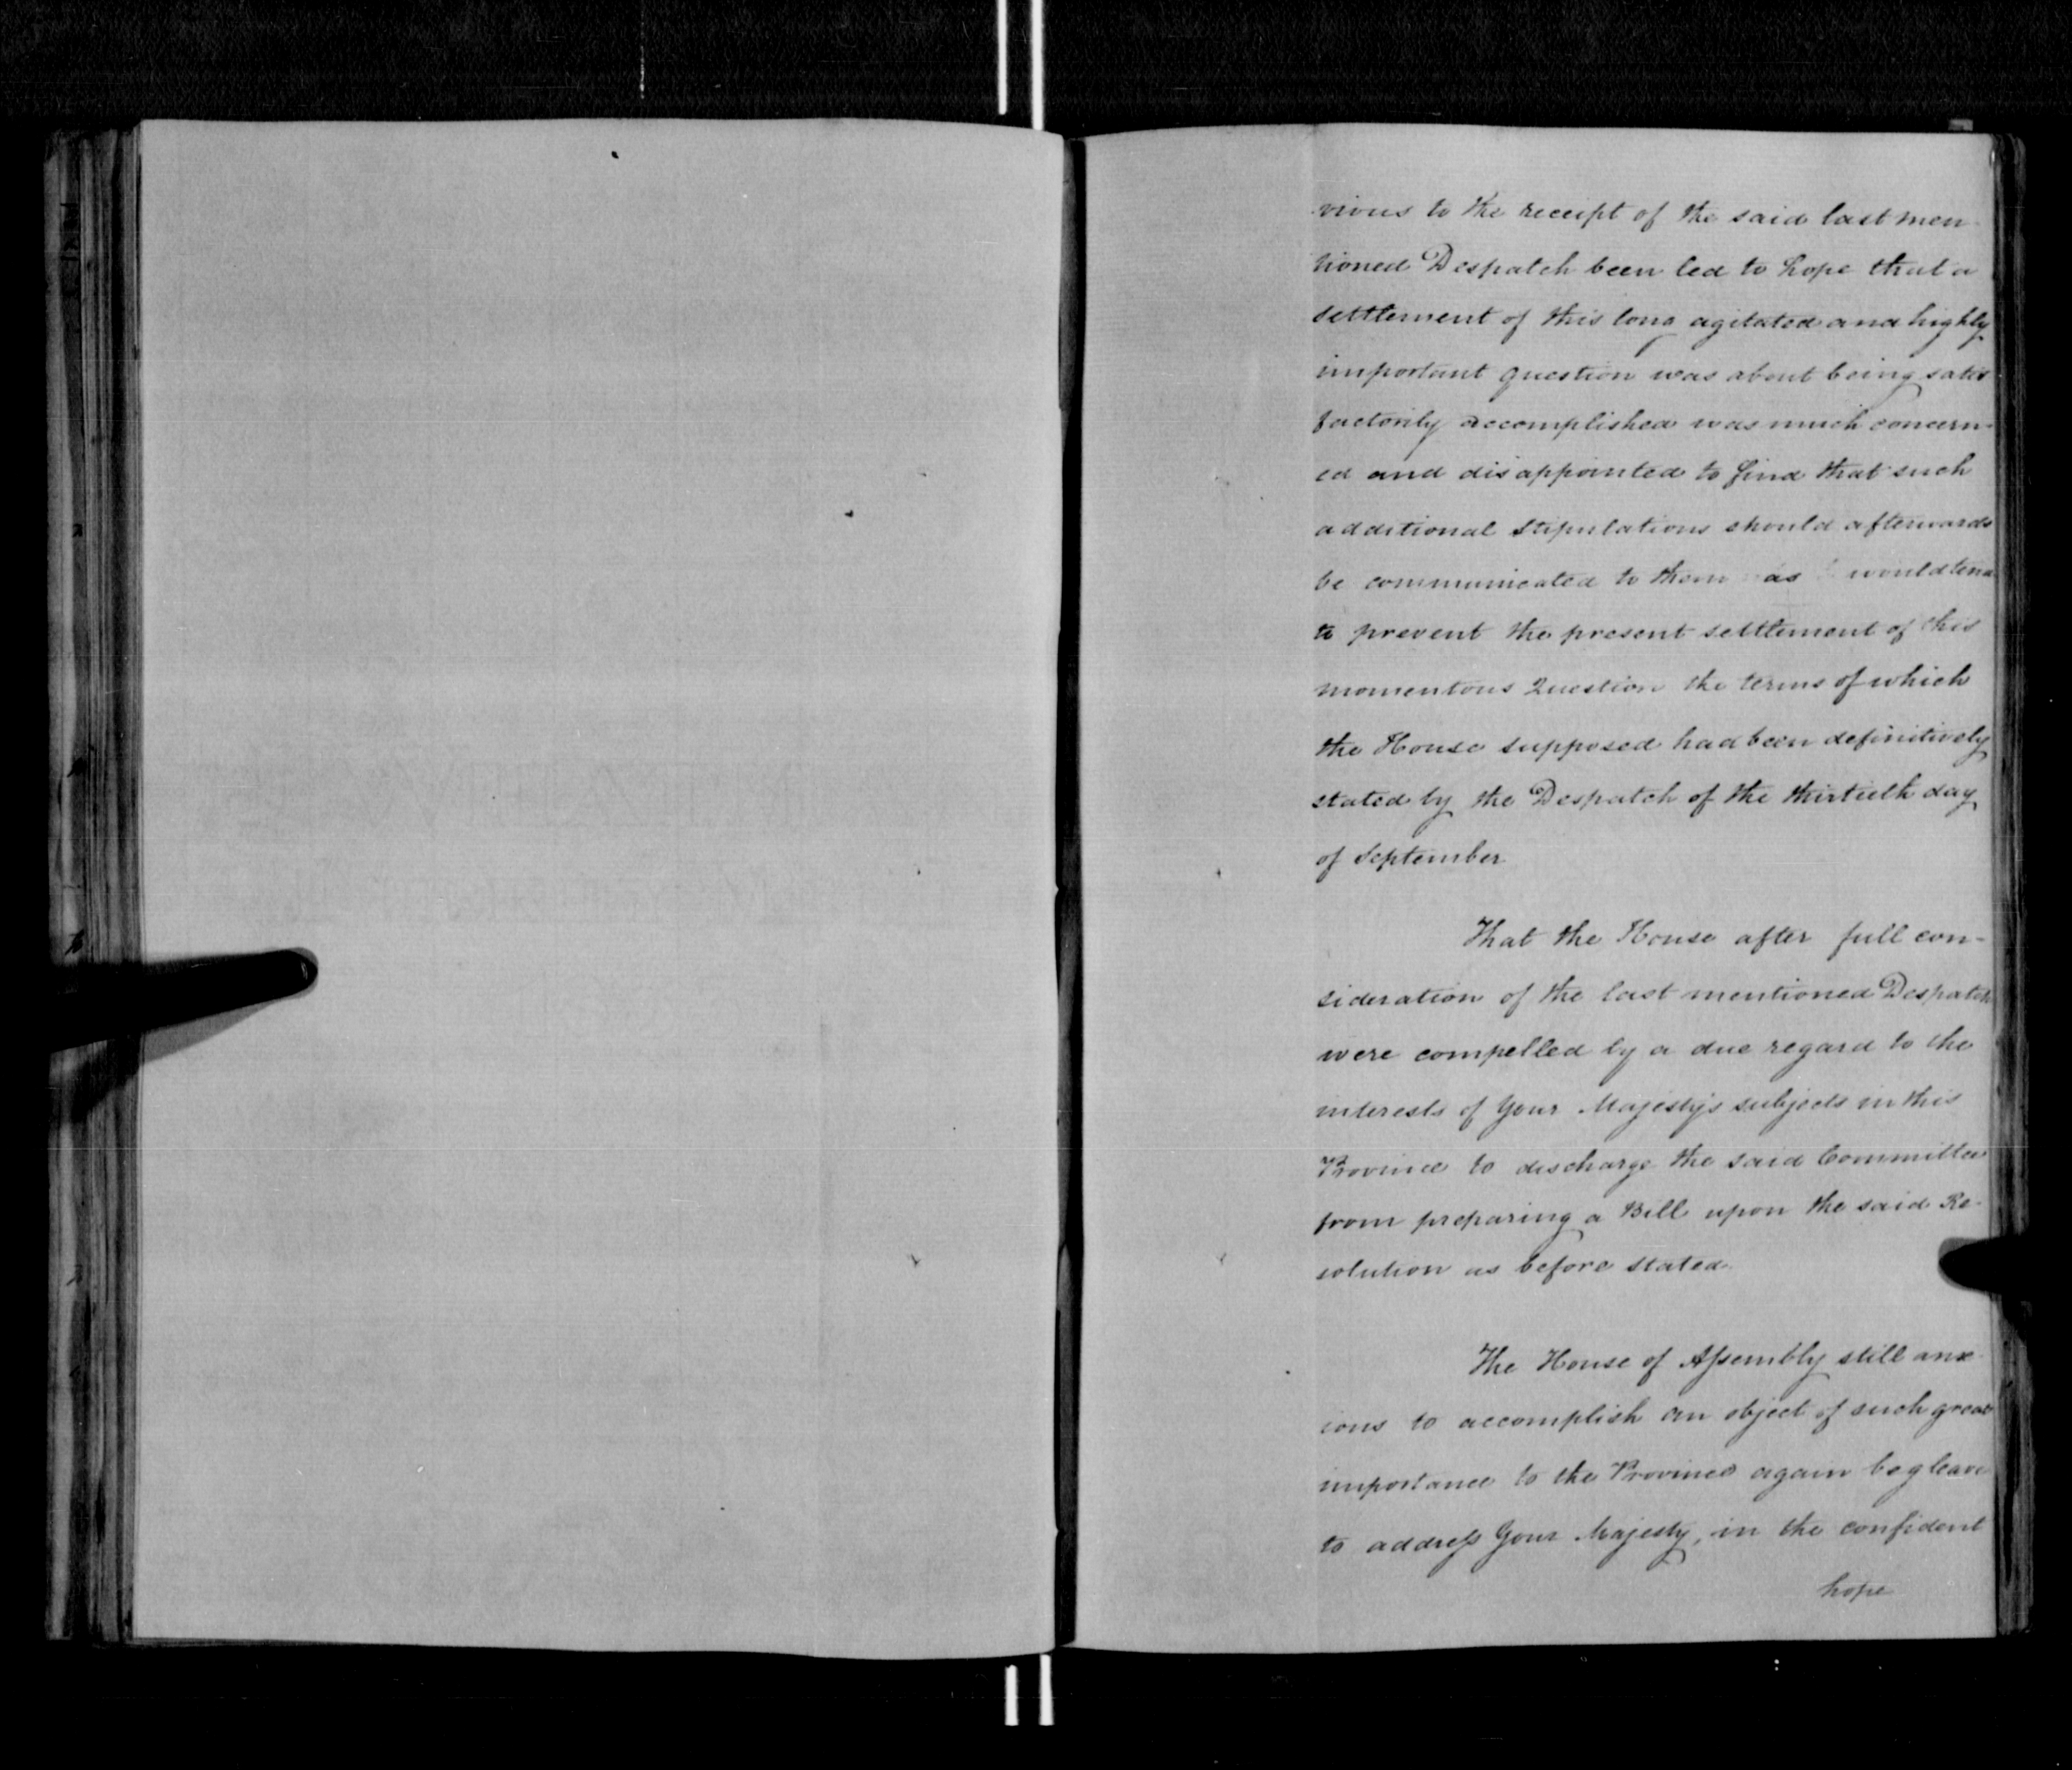 vious to the receipt of the said last men
tioned Despatch been led to hope that a
settlement of this long agitated and highly
important question was about being satis
factorily accomplished was much concern-
ed and disappointed to find that such
additional Stipulations should afterwards
be communicated to them as would tend
to prevent the present settlement of this
momentous Question the terms of which
the House supposed had been definitively
stated by the Despatch of the thirtieth day
of September
That the House after full con-
sideration of the last mentioned Despatch
were compelled by a due regard to the
interests of Your Majesty's subjects in this
Province to discharge the said Committee
from preparing a Bill upon the said Re-
solution as before stated.
The House of Assembly still anx-
ious to accomplish an object of such great
importance to the Province again beg leave
to address Your Majesty, in the confident
hope